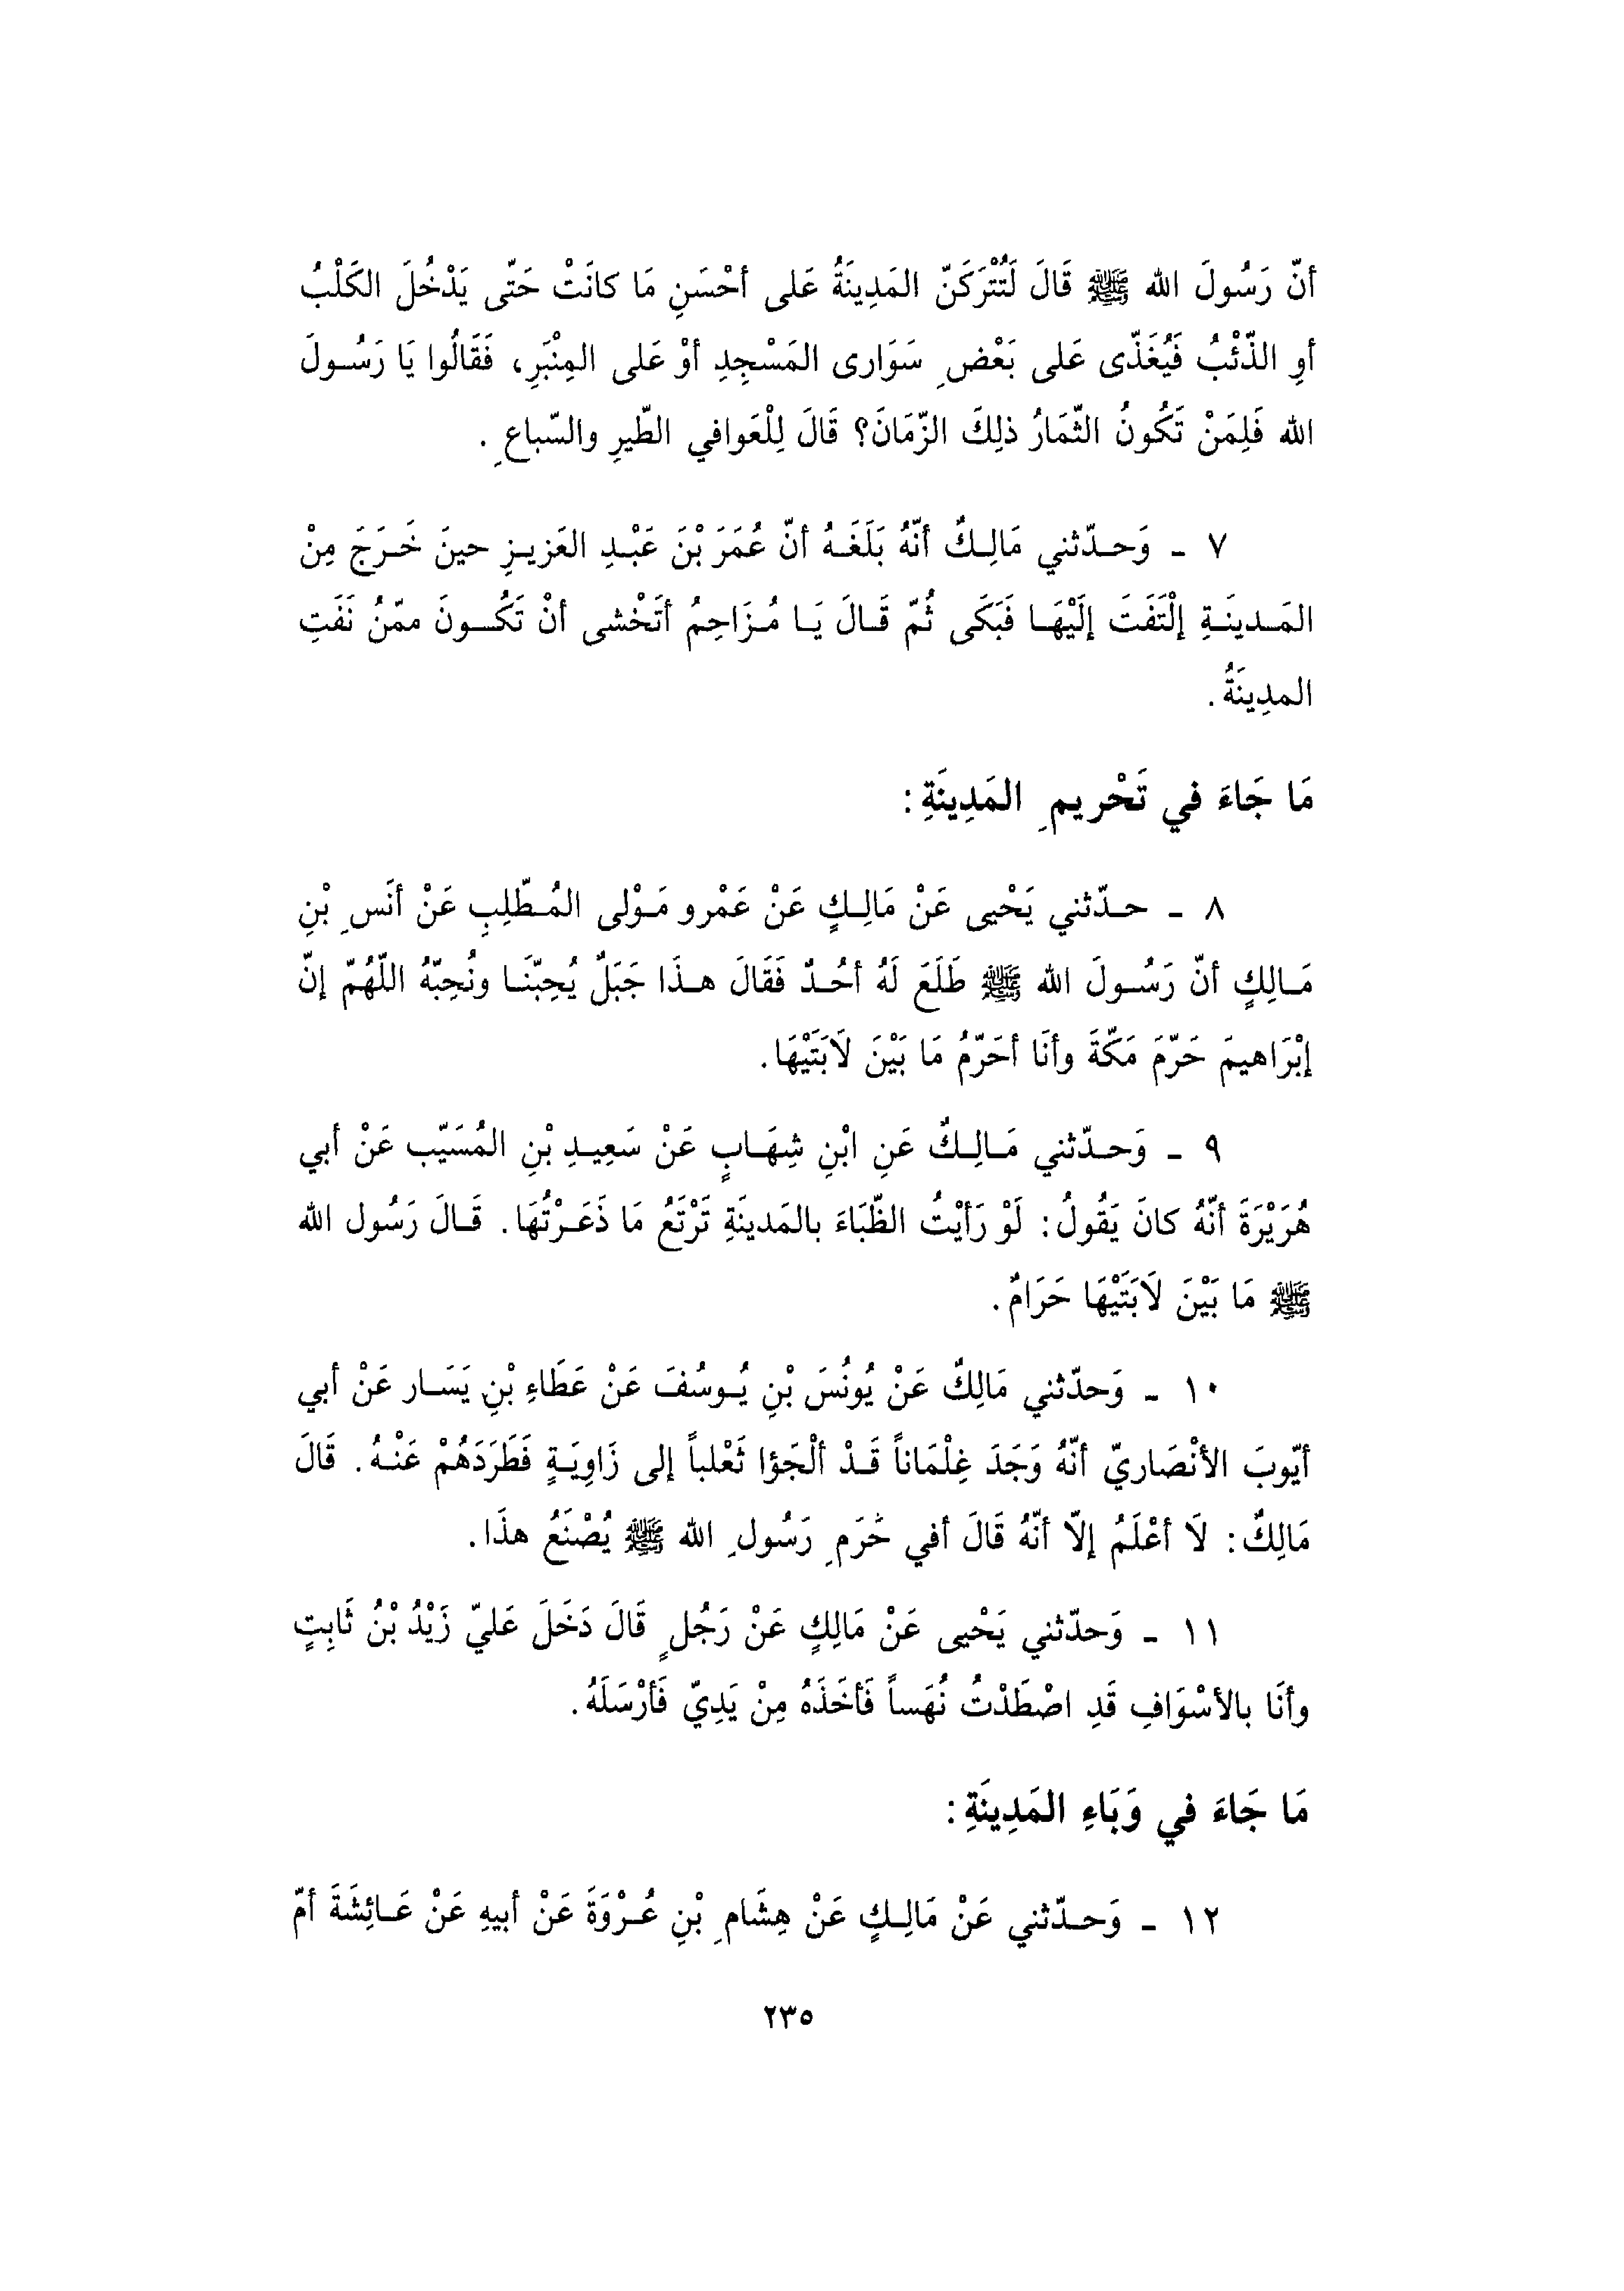 أنّ رَسُولَ الله ﷺ قَالَ لَتُتْرَكَنّ المَدِينَةُ عَلى أحْسَنِ مَا كانَتْ حَتّى يَدْخُلَ الكَلْبُ
أوِ الذّئْبُ فَيُغَذّى عَلى بَعْضِ سَوَارى المَسْجِدِ أوْ عَلى المِنْبَرِ، فَقَالُوا يَا رَسُولَ
الله فَلِمَنْ تَكُونُ الثّمَارُ ذلِكَ الزّمَانَ؟ قَالَ لِلْعَوافي الطّيرِ والسّباعِ.
٧ - وَحدّثني مَالِكٌ أنّهُ بَلَغَهُ أنّ عُمَرَ بْنَ عَبْدِ العَزيزِ حينَ خَرَجَ مِنْ
المَدينَةِ إلْتَفَتَ إلَيْهَا فَبَكَى ثُمّ قَالَ يَا مُزَاحِمُ أتَخْشى أنْ تَكُونَ ممّنُ نَفَتِ
المدِينَةُ.
مَا جَاءَ في تَحْريمِ المَدِينَةِ:
٨ - حدّثني يَحْيى عَنْ مَالِكٍ عَنْ عَمْرو مَوْلى المُطّلِبِ عَنْ أنَسِ بْنِ
مَالِكٍ أنّ رَسُولَ الله ﷺ طَلَعَ لَهُ أحُدٌ فَقَالَ هذَا جَبَلٌ يُحِبّنَا ونُحِبّهُ اللّهُمّ إنّ
إبْرَاهيمَ حَرّمَ مَكّةَ وأنَا أحَرّمُ مَا بَيْنَ لاَبَتَيْهَا.
٩ - وَحدّثني مَالِكٌ عَنِ ابْنِ شِهَابٍ عَنْ سَعِيدِ بْنِ المُسَيّب عَنْ أبي
هُرَيْرَةَ أنّهُ كانَ يَقُولُ: لَوْ رَأيْتُ الظّبَاءَ بالمَدينَةِ تَرْتَعُ مَا ذَعَرْتُهَا. قَالَ رَسُول الله
ﷺ مَا بَيْنَ لاَبَتَيْهَا حَرَامٌ.
١٠ - وَحدّثني مَالِكٌ عَنْ يُونُسَ بْنِ يُوسُفَ عَنْ عَطَاءِ بْنِ يَسَار عَنْ أبي
أيّوبَ الأنْصَاريّ أنّهُ وَجَدَ غِلْمَاناً قَدْ ألْجَؤا ثَعْلباً إلى زَاوِيَةٍ فَطَرَدَهُمْ عَنْهُ. قَالَ
مَالِكٌ: لَا أعْلَمُ إلاّ أنّهُ قَالَ أفي حَُرَمِ رَسُولِ الله ﷺ يُصْنَعُ هذَا.
١١ - وَحدّثني يَحْيى عَنْ مَالِكٍ عَنْ رَجُلٍ قَالَ دَخَلَ عَليّ زَيْدُ بْنُ ثَابِتٍ
وأنَا بالأسْوَافِ قَدِ اصْطَدْتُ نُهَساً فَأخَذَهُ مِنْ يَدِيّ فَأرْسَلَهُ.
مَا جَاءَ في وَبَاءِ المَدِينَةِ:
١٢ - وَحدّثني عَنْ مَالِكٍ عَنْ هِشَامِ بْنِ عُرْوَةَ عَنْ أبيهِ عَنْ عَائِشَةَ أمّ
٢٣٥